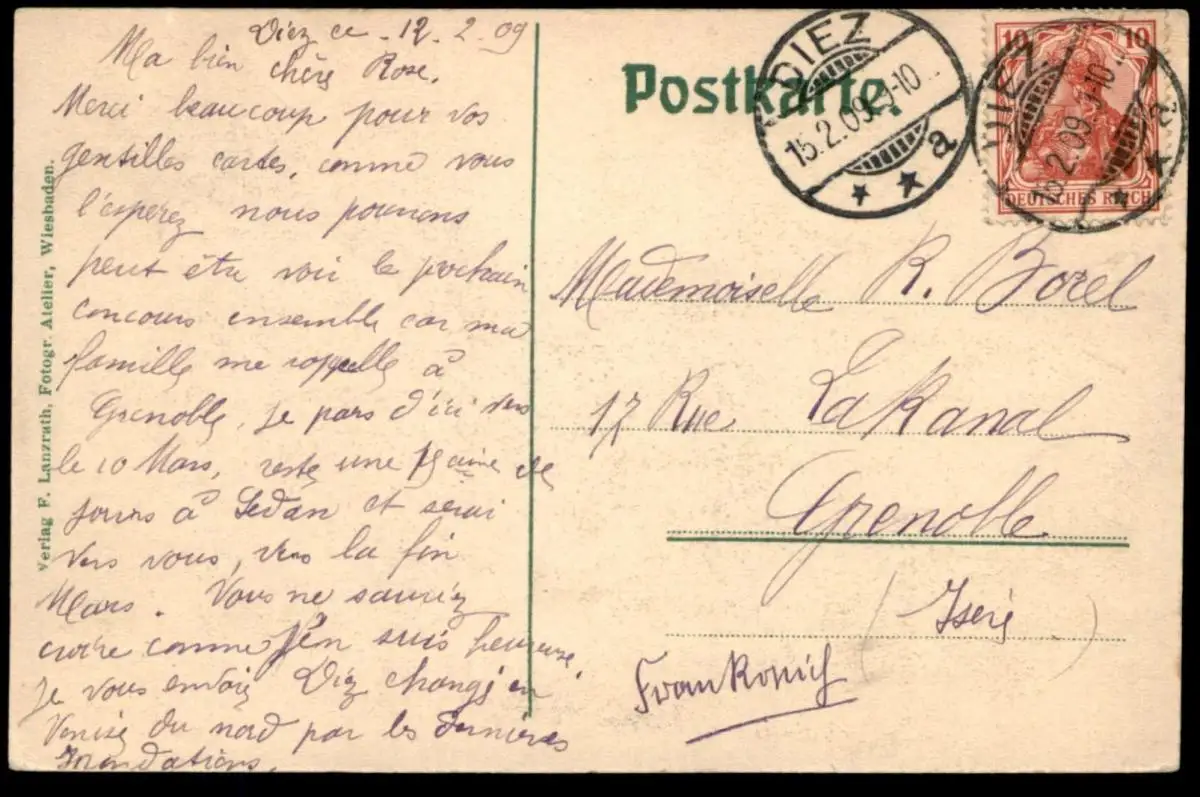 Diez ce 12.2.09
Ma bien
chère Rose.
Merci beaucoup pour vos
gentilles cartes, comme vous
l'espérez nous pouvons
peut être voir le prochain
concours ensemble car ma
famille me rappelle à
Grenoble, je pars d'ici vers
le 10 Mars, reste une
jours à Sedan et serai
vers vous, vers la fin
Mars. Vous ne sauriez
croire comme j'en suis heureuse.
Je vous envoie Diez changé en
Venise du nord par les dernières
Inondations.
Verlag F. Lanzrath, Fotogr. Atelier, Wiesbaden.
Postkarte.
DIEZ
15.2.09.9-10
a
10 10
DEUTSCHES REICH
DIEZ
15.2.09.9-10
a
Mademoiselle R. Borel
17 Rue LaKanal
Grenoble
(Isère)
Frankreich